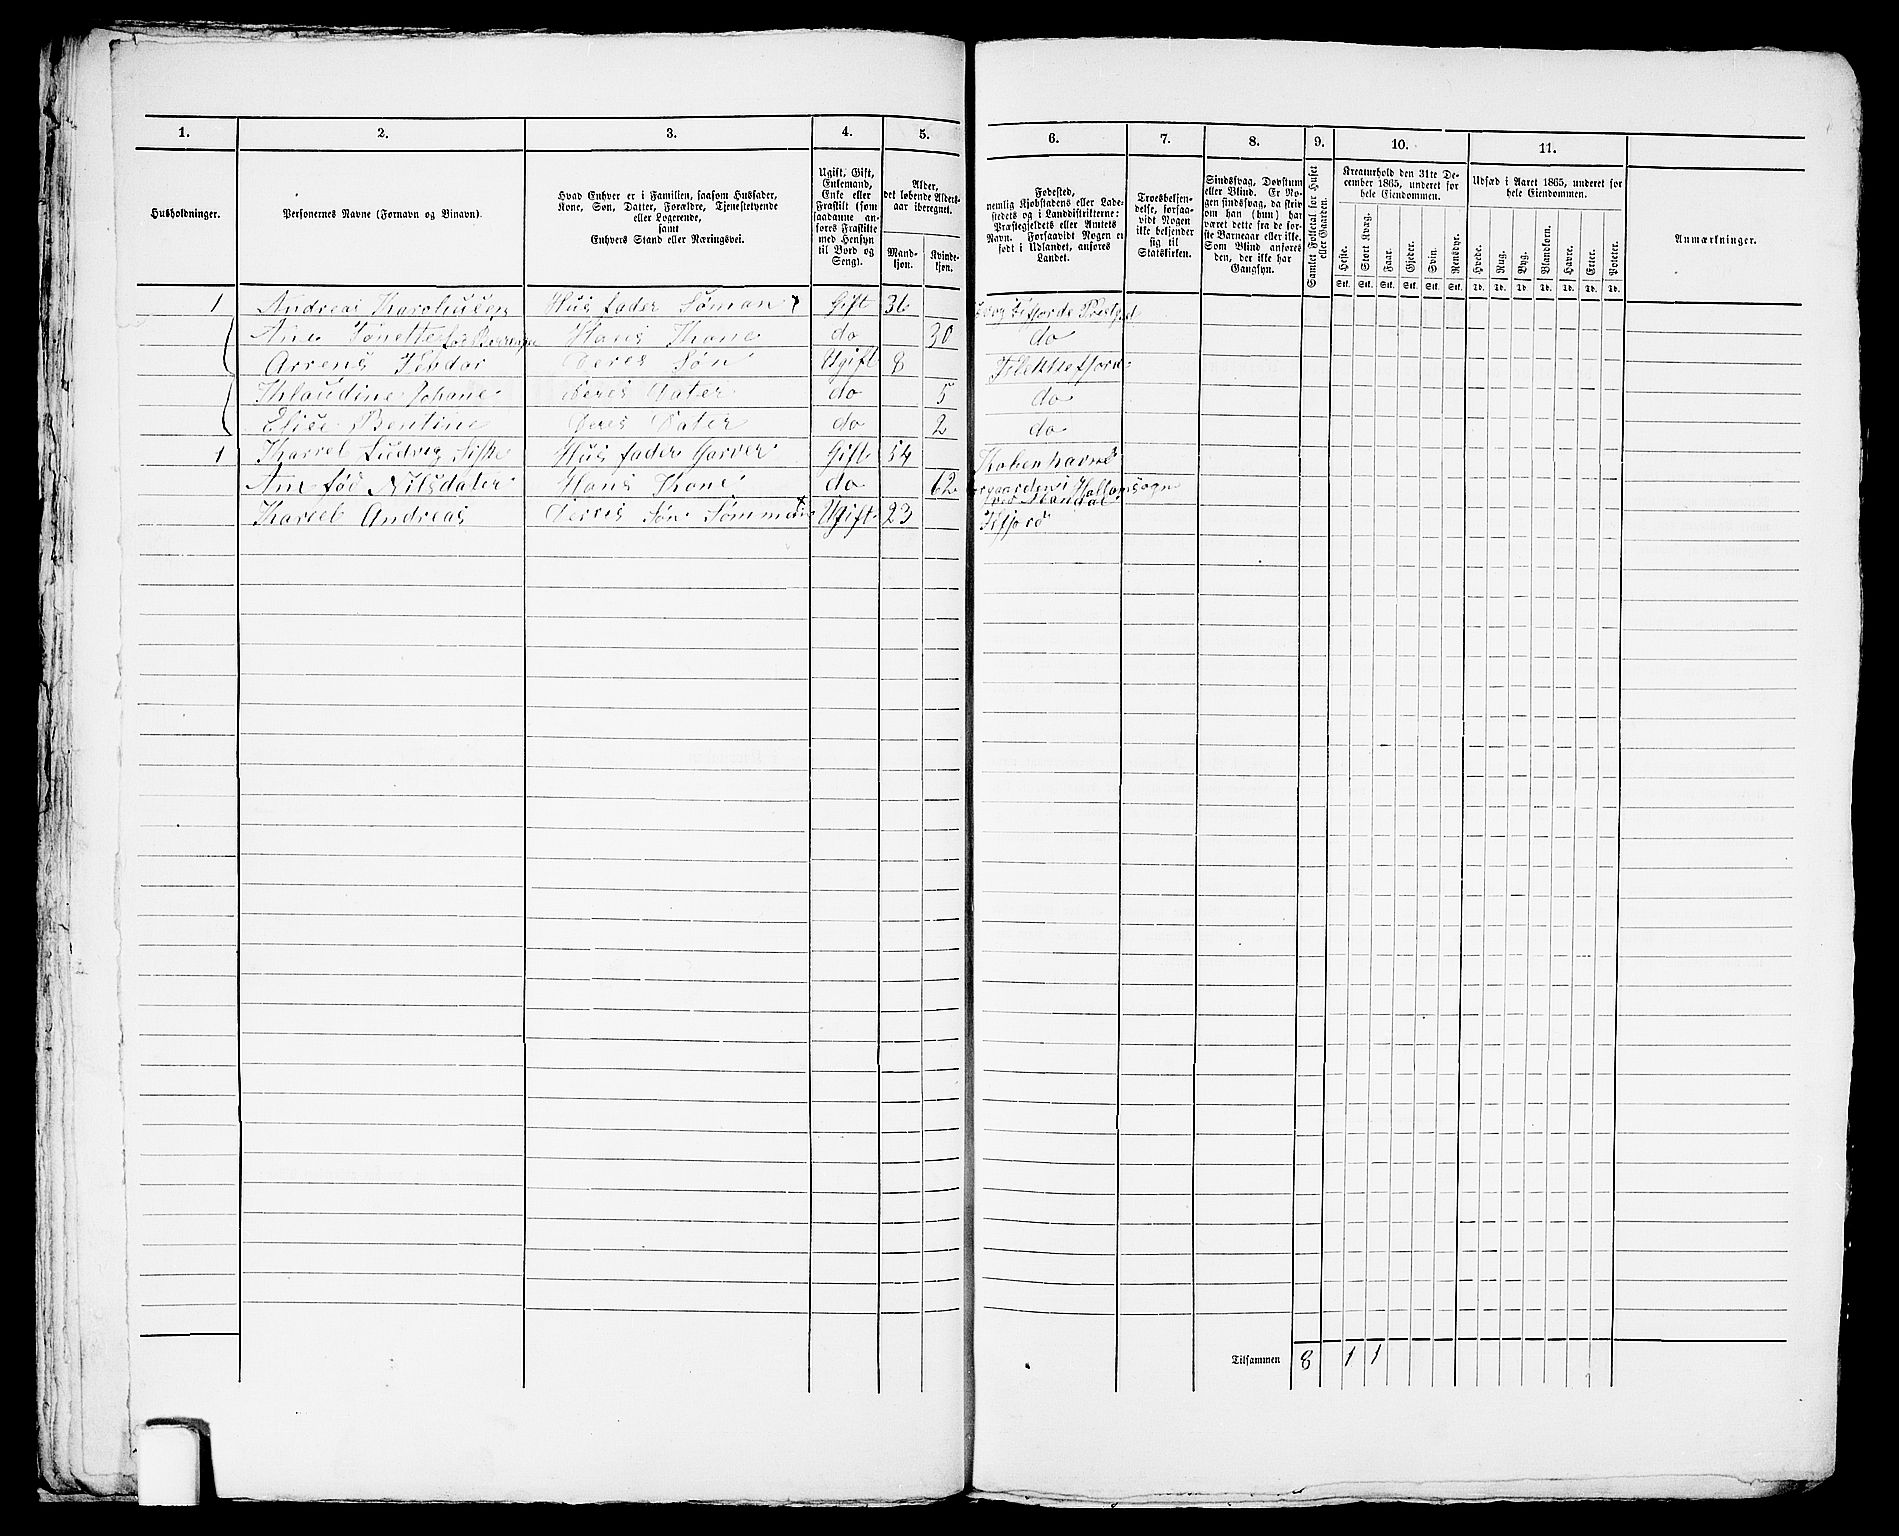 1. 2. 3. 4. 5. 6. 7. 8. 9. 10. 11.
Husholdninger.
Personernes Navne (Fornavn og Binavn).
Hvad Enhver er i Familien, saasom Husfader,
Kone, Søn, Datter, Forældre, Tjenestetyende
eller Logerende,
samt
Enhvers Stand eller Næringsvei.
Ugift, Gift,
Enkemand,
Enke eller
Fraskilt (som
saadanne an-
føres Fraskilte
med Hensyn
til Bord og
Seng).
Alder,
det løbende Alders-
aar iberegnet.
Mand-
kjøn.
Kvinde-
kjøn.
Fødested,
nemlig Kjøbstadens eller Lade-
stedets og i Landdistrikterne:
Præstegjeldets eller Amtets
Navn. Forsaavidt Nogen er
født i Udlandet, anføres
Landet.
Troesbekjen-
delse, forsaa-
vidt Nogen
ikke bekjender
sig til
Statskirken.
Sindssvag, Døvstum
eller Blind. Er No-
gen sindssvag, da skriv
om han (hun) har
været dette fra de før-
ste Barneaar eller ikke.
Som Blind anføres
den, der ikke har
Gangsyn.
Samlet Folketal for Huset
eller Gaarden.
Kreaturhold den 31te De-
cember 1865, underet for
hele Eiendommen.
Heste. Stort Kvæg. Faar. Gjeder. Svin. Rensdyr.
Stk. Stk. Stk. Stk. Stk. Stk.
Udsæd i Aaret 1865, underet for
hele Eiendommen.
Hvede. Rug. Byg. Blankorn. Havre. Erter. Poteter.
Td. Td. Td. Td. Td. Td. Td.
Anmærkninger.
1 Andreas Karolius Hus fader Søman Gift 36
Ane Tønette fød Hans Kone do 30 do
Arrens Teodor Deres Søn Ugift 8 Flekkefjord
Khlaudine Johane Deres Dater do 5 do
Elise Bentine Deres Dater do 2 do
1 Karrel Ludvig Hus fader Garver Gift 54 Kobenhavn
Ane fød Nilsdater Hans Kone do 62
Karrel Andreas Derres Søn Sømman Ugift 23
Tilsammen 8 1 1